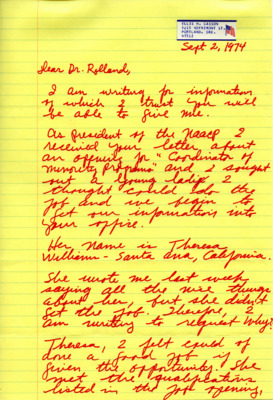 ELLIS H. CASSON
PORTLAND, ORE.
97211
Sept 2, 1974
Dear Dr. Rolland,
I am writing for information
of which I trust you will
be able to give me.
As president of the NAACP I
received your letter about
an opening for "Coordinator of
Minority Programs" and I sought
out a young lady I
thought could do the
job and we begin to
get our information into
your office.
Her name is Theresa
Williams - Santa Ana, California.
She wrote me last week
saying all the nice things
about her, but she didn't
get the job. Therefore, I
am writing to request why?
Theresa, I felt could of
done a good job if
given the opportunity. She
met the qualifications
listed in the job opening,